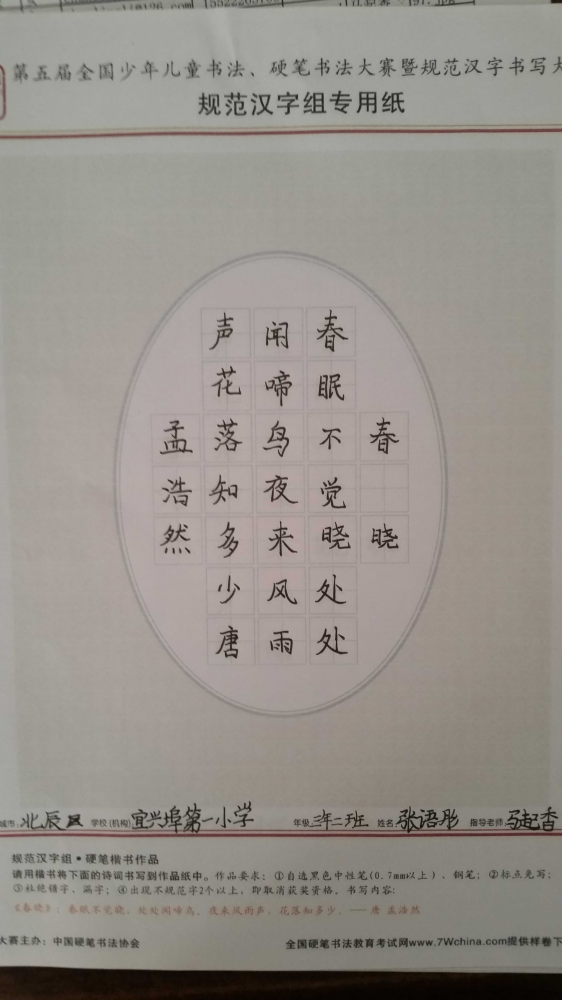 第五届全国少年儿童书法、硬笔书法大赛暨规范汉字书写大
规范汉字组专用纸
春晓
春眠不觉晓处处
闻啼鸟夜来风雨
声花落知多少唐
孟浩然
城市:北辰区 学校(机构)宜兴埠第一小学 年级 三年二班 姓名 张语彤 指导老师 马起香
规范汉字组·硬笔楷书作品
请用楷书将下面的诗词书写到作品纸中。作品要求:①自选黑色中性笔(0.7mm以上)、钢笔;②标点免写;
③杜绝错字、漏字;④出现不规范字2个以上,即取消获奖资格。书写内容:
《春晓》:春眠不觉晓,处处闻啼鸟。夜来风雨声,花落知多少。——唐 孟浩然
大赛主办:中国硬笔书法协会 全国硬笔书法教育考试网www.7Wchina.com提供样卷下